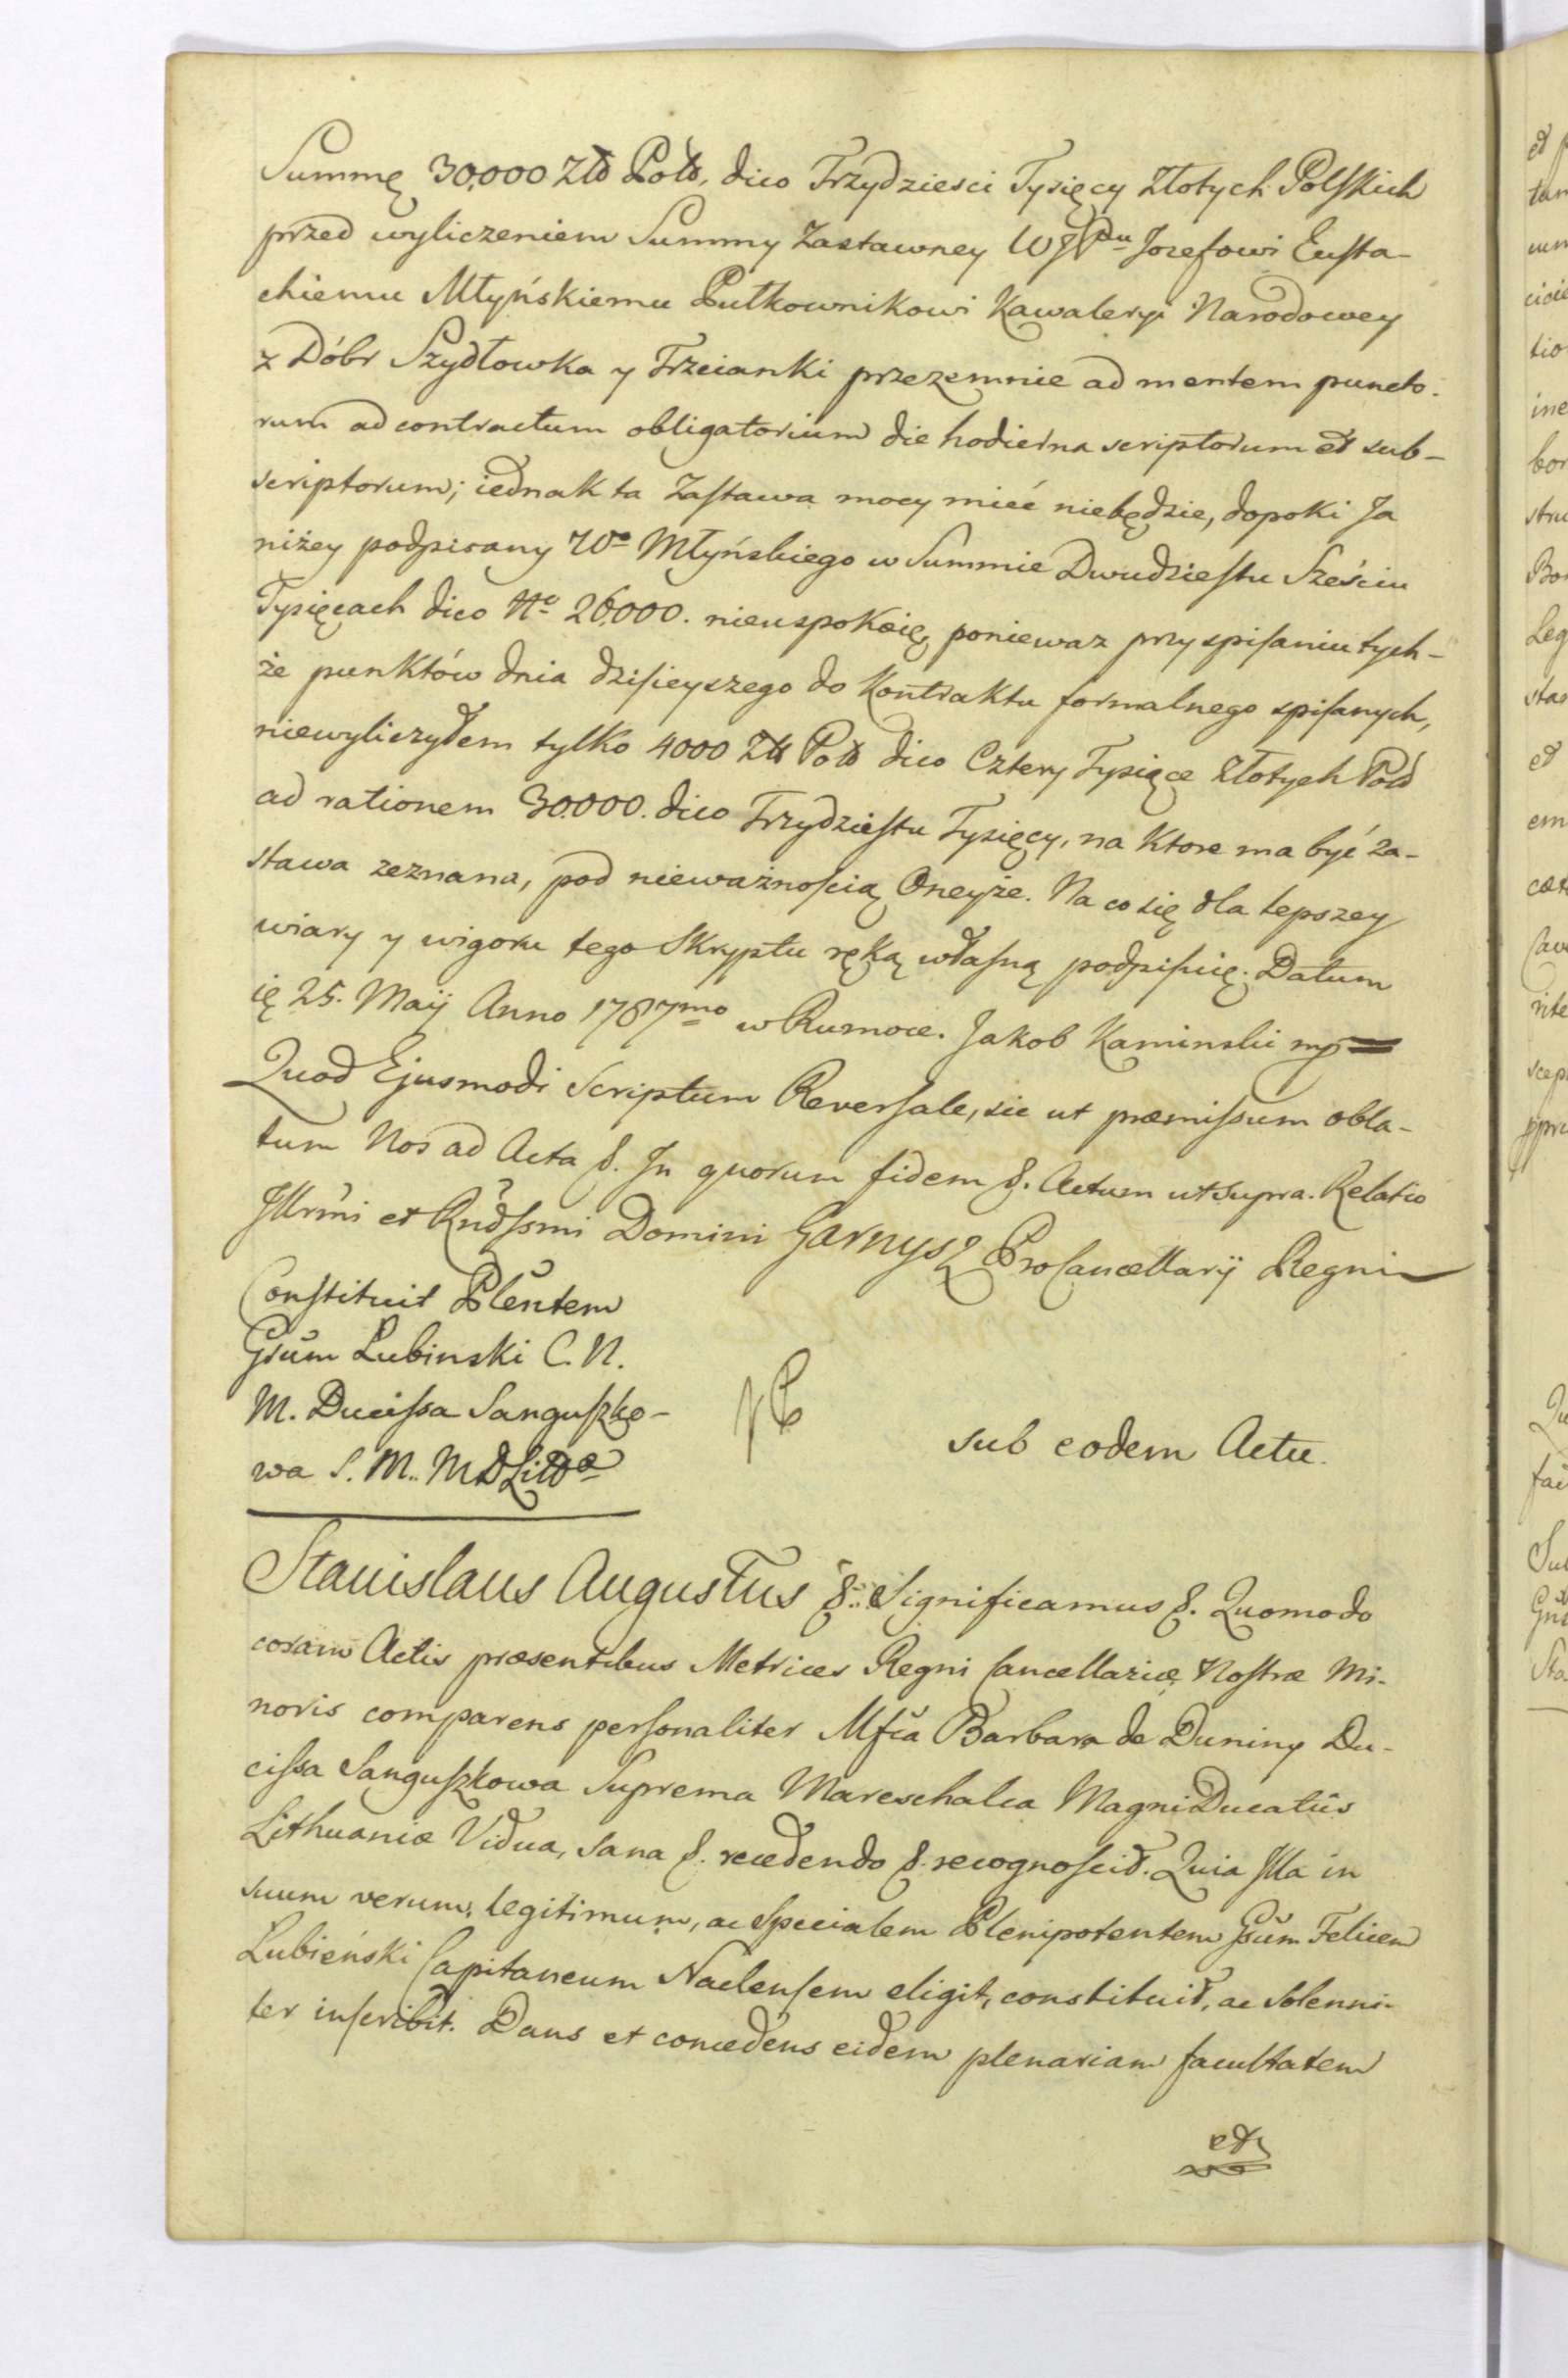 Summę 30,000 Złł Poll, dico Trzydziesci Tysięcy Złotych Polskich
przed wyliczeniem Summy Zastawney WJPnu Jozefowi Eusta-
chiemu Młyńskiemu Pułkownikowi Kawaleryi Narodowey
z Dóbr Szydłowka y Trzcianki przezemnie ad mentem puncto-
rum ad contractum obligatorium die hodierna scriptorum et sub-
scriptorum; iednak ta Zastawa mocy mieć niebędzie, dopoki Ja
niżey podpisany Wo Młyńskiego w Summie Dwudziestu Sześciu
Tysięcach dico No 26,000. nieuspokoię, poniewaz przy spisaniu tych-
że punktów dnia dzisieyszego do Kontraktu formalnego spisanych,
niewyliczyłem tylko 4000 Złł Poll dico Cztery Tysiące Złotych Pols
ad rationem 30.000. dico Trzydziestu Tysięcy, na ktore ma być za-
stawa zeznana, pod nieważnością Oneyże. Na co się dla lepszey
wiary y wigoru tego Skryptu ręką własną podpisuię. Datum
ię 25. Maij Anno 1787mo w Rumoce. Jakob Kaminski mp
Quod Ejusmodi Scriptum Reversale, sic ut præmissum obla-
tum Nos ad Acta &. In quorum fidem &. Actum ut supra. Relatio
Illrmi et Rndssmi Domini Garnysz ProCancellarij Regni
Constituit Plentem
Gsum Lubinski C. N.
M. Ducissa Sanguszko-
wa S. M. M D Littæ
sub eodem Actu.
Stanislaus Augustus &. Significamus &. Quomodo
coram Actis præsentibus Metrices Regni Cancellariæ Nostræ Mi-
noris comparens personaliter Mfca Barbara de Duniny Du-
cissa Sanguszkowa Suprema Mareschalca Magni Ducatûs
Lithuaniæ Vidua, sana &. recedendo &. recognoscit. Quia Illa in
suum verum, legitimum, ac Specialem Plenipotentem Gsum Felicem
Lubieński Capitaneum Naclensem eligit, constituit, ac solenni-
ter inscribit. Dans et concedens eidem plenariam facultatem
et